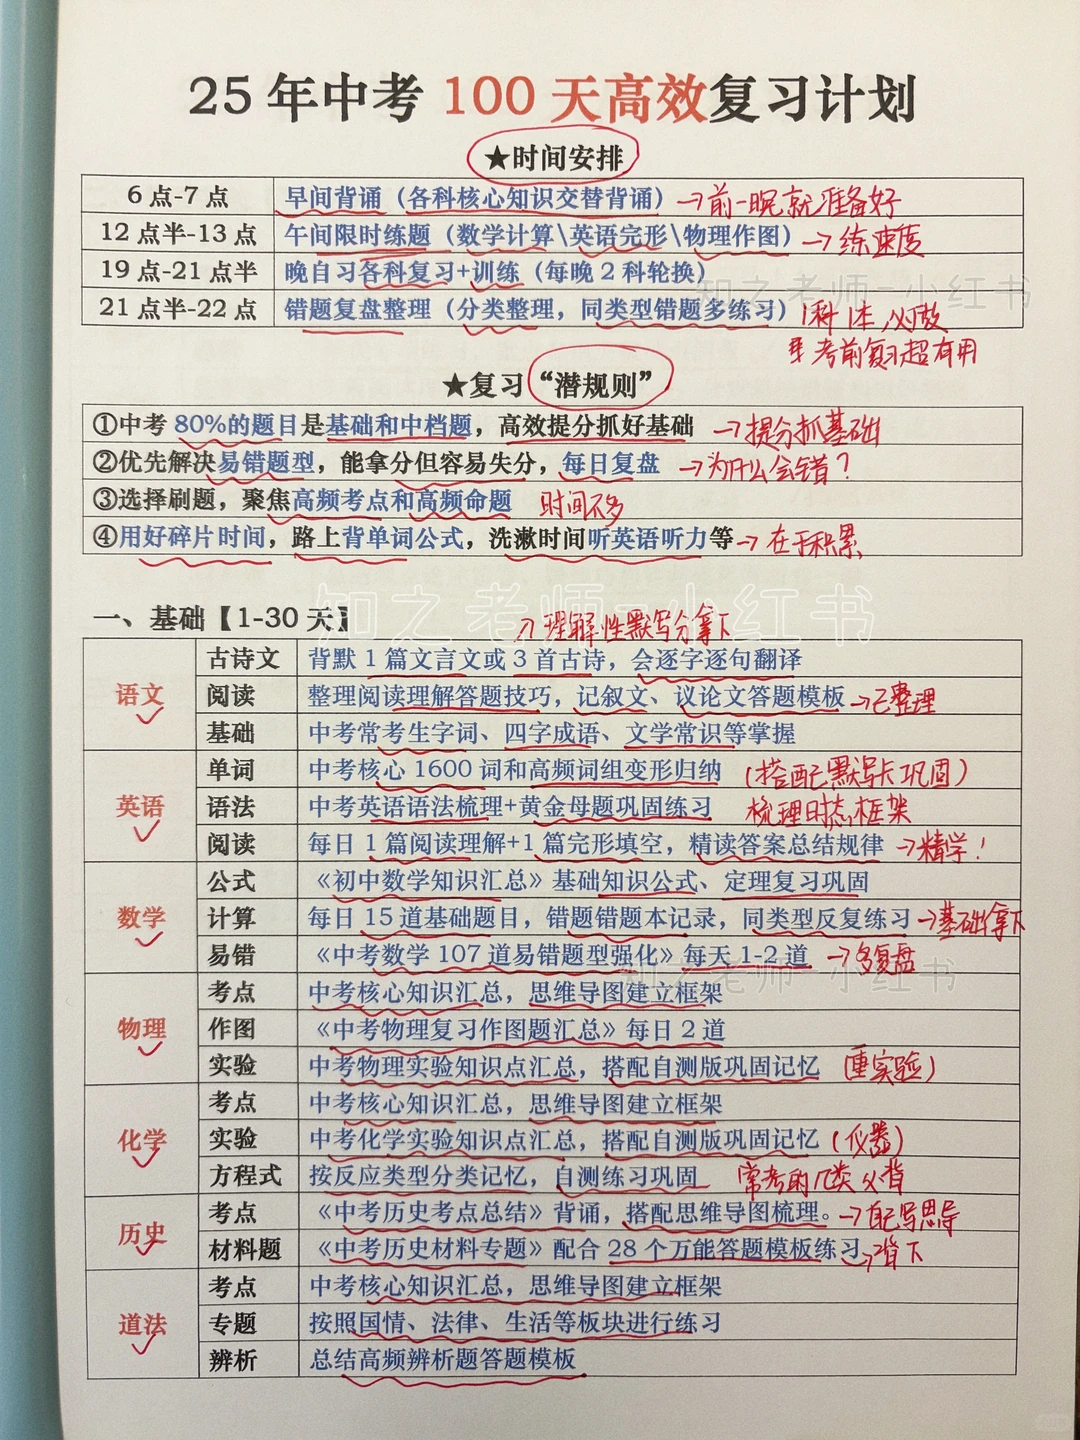 25年中考100天高效复习计划
★时间安排
6点-7点 早间背诵（各科核心知识交替背诵）→前一晚就准备好
12点半-13点 午间限时练题（数学计算\英语完形\物理作图）→练速度
19点-21点半 晚自习各科复习+训练（每晚2科轮换）
知之老师-小红书
21点半-22点 错题复盘整理（分类整理，同类型错题多练习）1科1本,必做
考前复习超有用
★复习“潜规则”
①中考80%的题目是基础和中档题，高效提分抓好基础 →提分抓基础
②优先解决易错题型，能拿分但容易失分，每日复盘 →为什么会错？
③选择刷题，聚焦高频考点和高频命题 时间不多
④用好碎片时间，路上背单词公式，洗漱时间听英语听力等→在于积累
知之老师-小红书
一、基础【1-30天】
→理解性默写分拿下
语文 古诗文 背默1篇文言文或3首古诗，会逐字逐句翻译
阅读 整理阅读理解答题技巧，记叙文、议论文答题模板→已整理
基础 中考常考生字词、四字成语、文学常识等掌握
英语 单词 中考核心1600词和高频词组变形归纳（搭配默写卡巩固）
语法 中考英语语法梳理+黄金母题巩固练习 梳理时态框架
阅读 每日1篇阅读理解+1篇完形填空，精读答案总结规律→精学！
数学 公式 《初中数学知识汇总》基础知识公式、定理复习巩固
计算 每日15道基础题目，错题错题本记录，同类型反复练习→基础拿下
易错 《中考数学107道易错题型强化》每天1-2道 →多复盘
知之老师-小红书
物理 考点 中考核心知识汇总，思维导图建立框架
作图 《中考物理复习作图题汇总》每日2道
实验 中考物理实验知识点汇总，搭配自测版巩固记忆（重实验）
化学 考点 中考核心知识汇总，思维导图建立框架
实验 中考化学实验知识点汇总，搭配自测版巩固记忆（仪器）
方程式 按反应类型分类记忆，自测练习巩固 常考的几类必背
历史 考点 《中考历史考点总结》背诵，搭配思维导图梳理。→自己写思导
材料题 《中考历史材料专题》配合28个万能答题模板练习→背下
道法 考点 中考核心知识汇总，思维导图建立框架
专题 按照国情、法律、生活等板块进行练习
辨析 总结高频辨析题答题模板